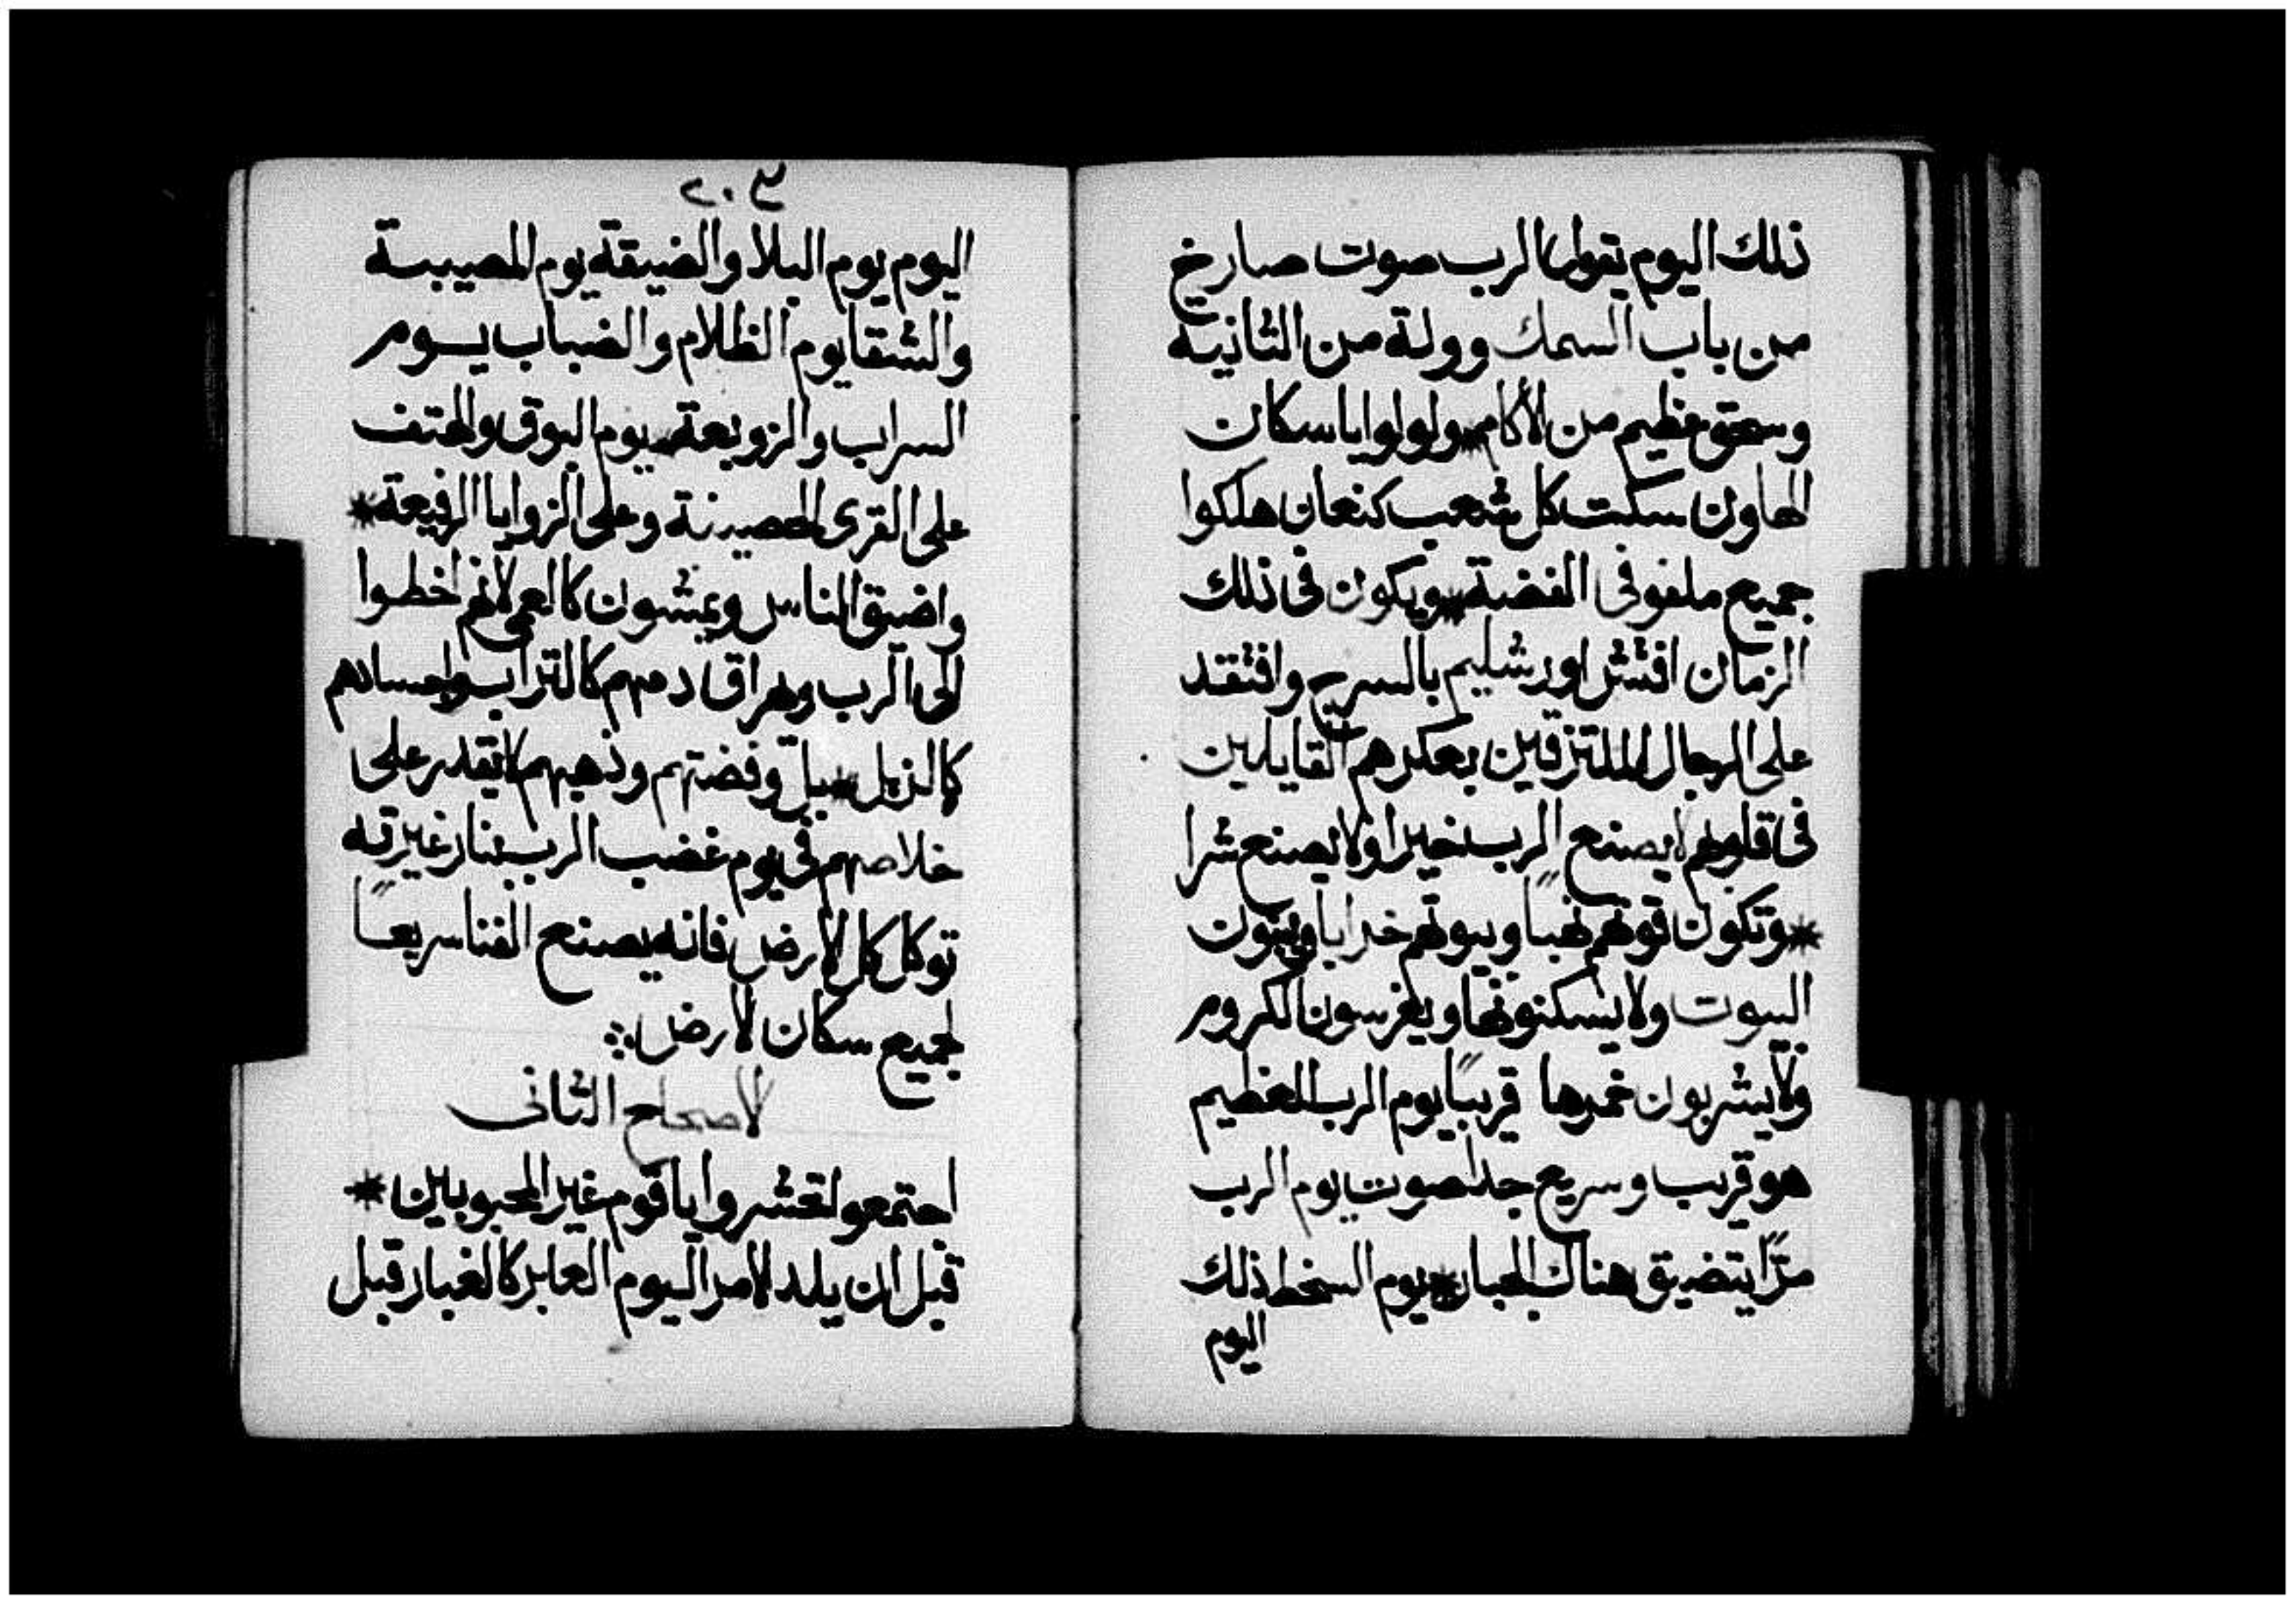 ذلك اليوم يقول الرب صوت صارخ
من باب السمك وولة من الثانية
وسحق عظيم من الأكام * ولولوا يا سكان
الهاون سكت كل شعب كنعان هلكوا
جميع ملفوفي الفضة * ويكون في ذلك
الزمان افتش اورشليم بالسرج وافتقد
على الرجال الملتزقين بعكرهم القايلين
في قلوبهم لا يصنع الرب خيرا ولا يصنع شرا
* وتكون قوتهم نهبًا وبيوتهم خرابا ويبنون
البيوت ولا يسكنونها ويغرسون الكروم
ولا يشربون خمرها قريبًا يوم الرب العظيم
هو قريب وسريع جدا صوت يوم الرب
مرًّا يتضيق هناك الجبار * يوم السخط ذلك
اليوم
٢٠٣
اليوم يوم البلا والضيقة يوم المصيبة
والشقا يوم الظلام والضباب يوم
السراب والزوبعة * يوم البوق والهتف
على القرى الحصينة وعلى الزوايا الرفيعة *
واضيق الناس ويمشون كالعمي لانهم اخطوا
الى الرب ويهراق دمهم كالتراب واجسادهم
كالزبل * وفضتهم وذهبهم لا تقدر على
خلاصهم في يوم غضب الرب بنار غيرته
توكل كل الارض فانه يصنع الفنا سريعًا
لجميع سكان الارض
الاصحاح الثاني
اجتمعوا تحشروا يا قوم غير المحبوبين *
قبل ان يلد الامر اليوم العابر كالغبار قبل